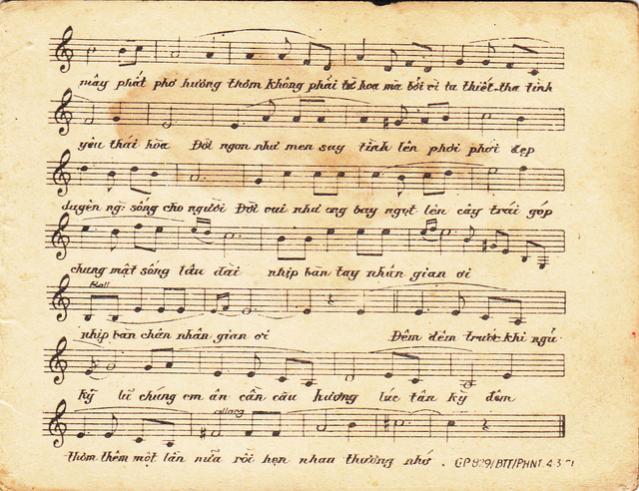 mây phất phơ hương thơm không phải từ hoa mà bởi vì ta thiết tha tình
yêu thái hòa Đời ngon như men say tình lên phơi phới đẹp
duyên người sống cho người Đời vui như ong bay ngọt lên cây trái góp
chung mật sống lâu dài nhịp bàn tay nhân gian ơi
Rall
nhịp bàn chân nhân gian ơi Đêm đêm trước khi ngủ
kỹ lữ chúng em ân cần câu hương lúc tân kỳ đêm
allarg
thơm thêm một lần nữa rồi hẹn nhau thương nhớ. GP 829/BTT/PHNT 4.3.71